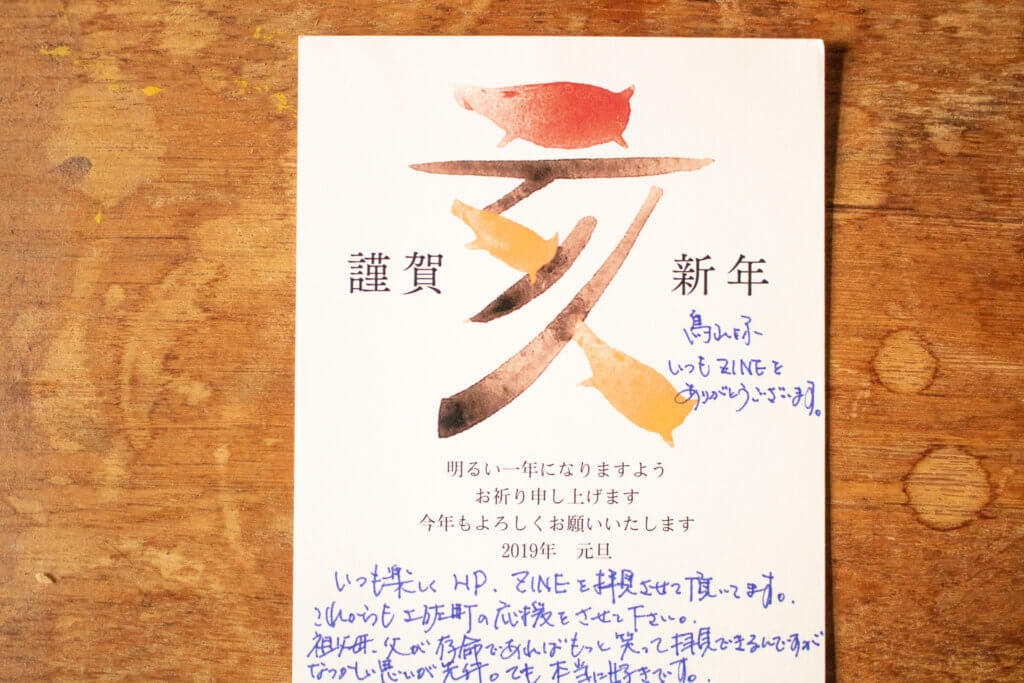 亥
謹賀
新年
鳥山様
いつもZINEを
ありがとうございます。
明るい一年になりますよう
お祈り申し上げます
今年もよろしくお願いいたします
2019年 元旦
いつも楽しくHP、ZINEを拝見させて頂いてます。
これからも土佐町の応援をさせて下さい。
祖父母、父が存命であればもっと笑って拝見できるんですが
なつかしい思いが先行。でも本当に好きです。